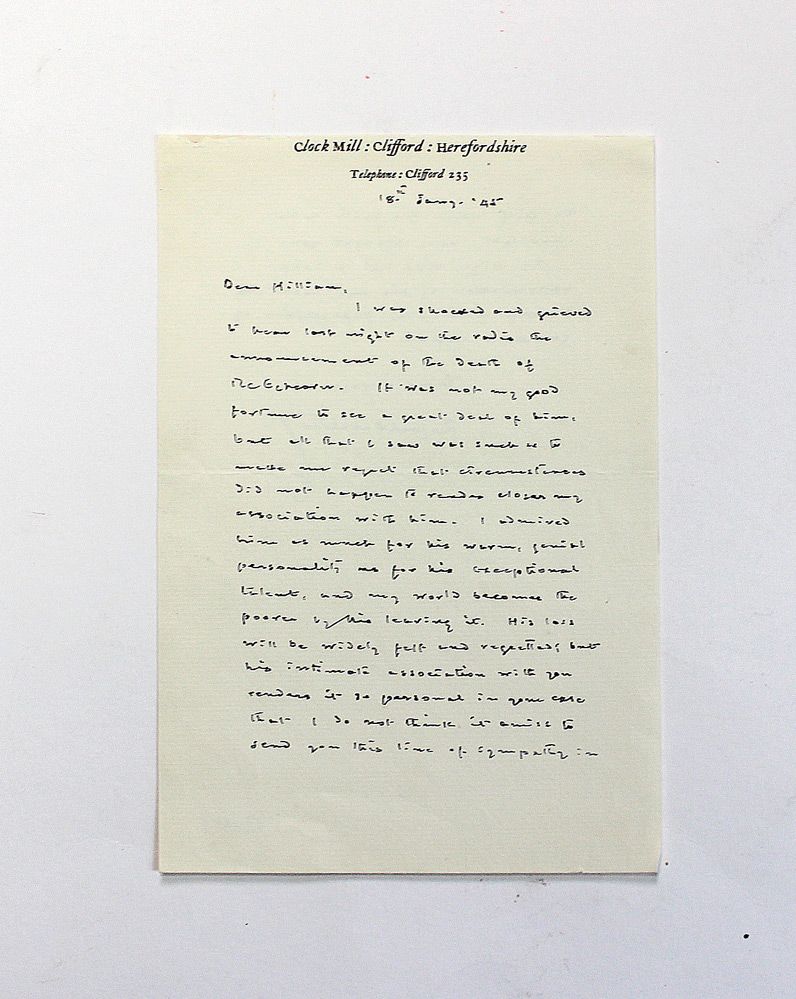 Clock Mill : Clifford : Herefordshire
Telephone : Clifford 235
18th Jany. '45
Dear William,
I was shocked and grieved
to hear last night on the radio the
announcement of the death of
It was not my good
fortune to see a great deal of him,
but all that I saw was such as to
make me regret that circumstances
did not happen to render closer my
association with him. I admired
him as much for his warm, genial
personality as for his exceptional
talent, and my world becomes the
poorer by his leaving it. His loss
will be widely felt and regretted; but
his intimate association with you
renders it so personal in your case
that I do not think it amiss to
send you this line of sympathy in